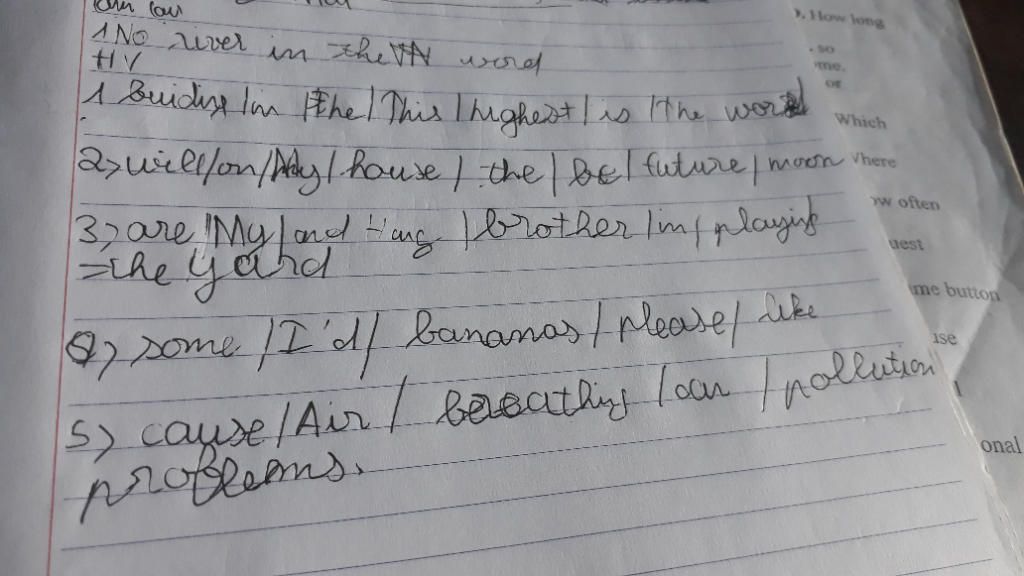 1 No river in the word
HV
1 Buiding / in / the / This / highest / is / the world
2, will / on / My / house / the / be / future / moon
3, are / My / and Hang / brother / in / playing
the yard
4, some / I'd / bananas / please / like
5, cause / Air / breathing / can / pollution
problems.
. How long
. so
me.
or
Which
Vhere
ow often
uest
me button
ise
onal